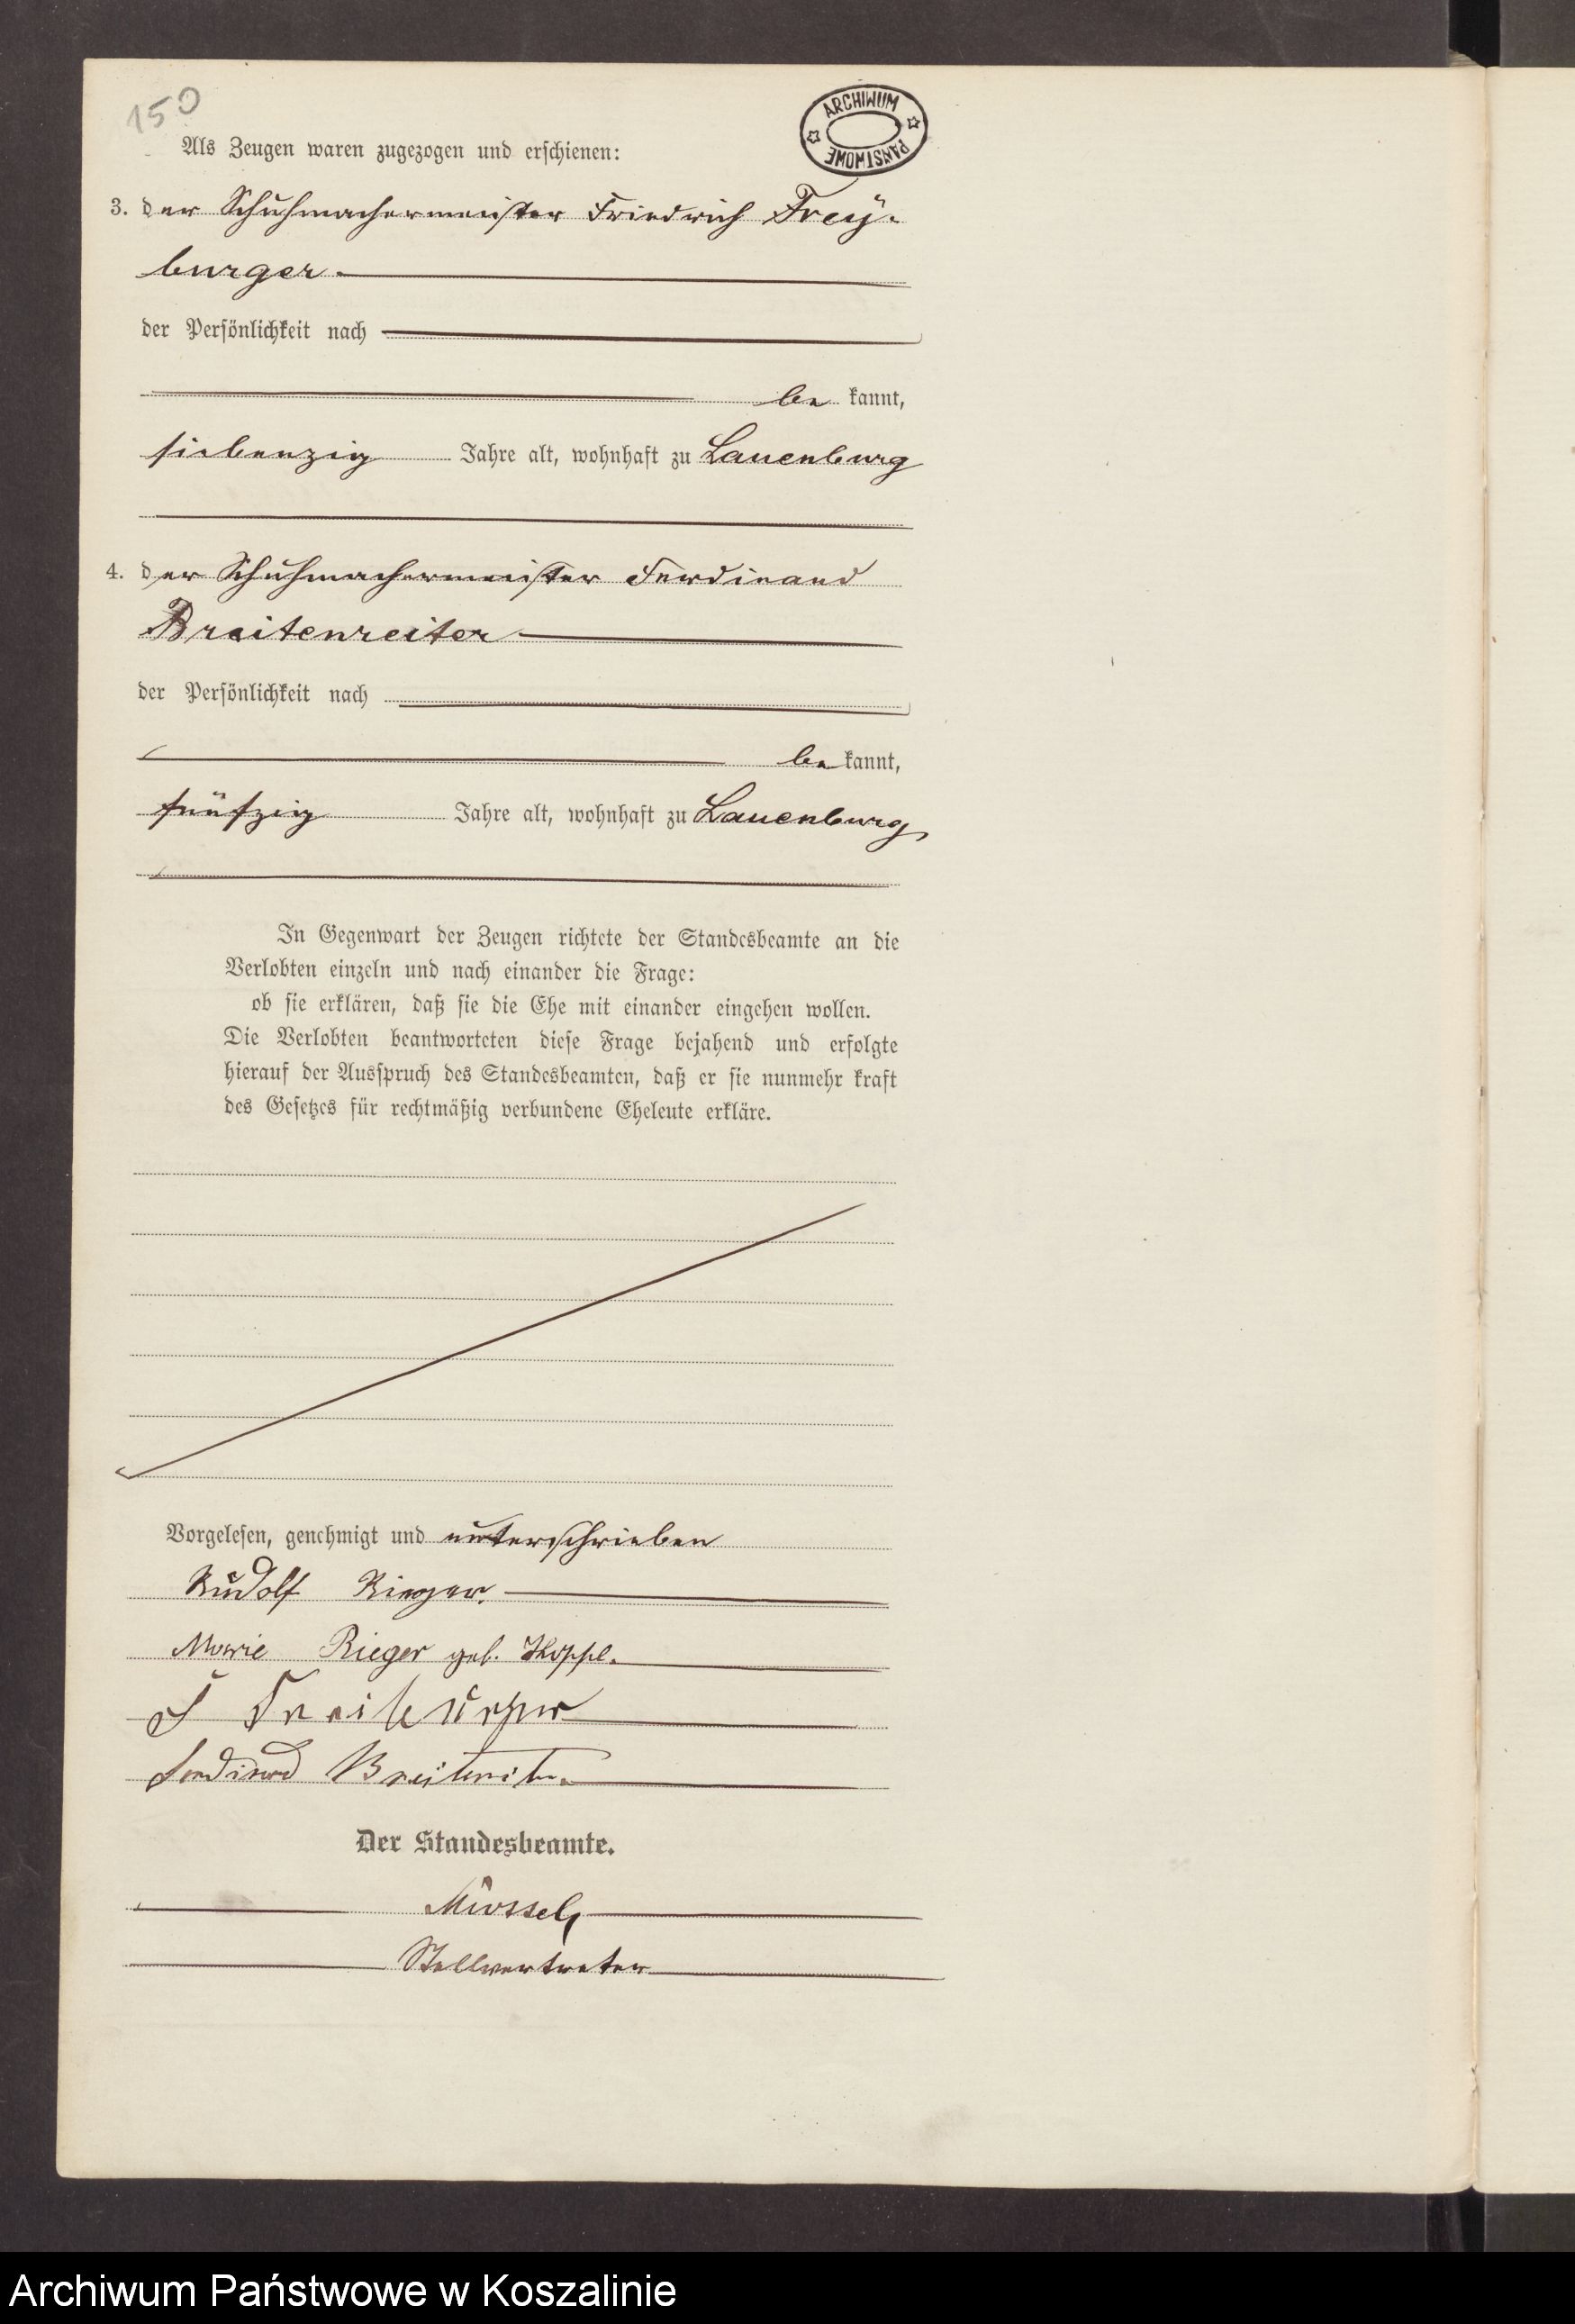 150
ARCHIWUM PAŃSTWOWE
Als Zeugen waren zugezogen und erschienen:
3. der Schuhmachermeister Friedrich Frey-
burger
der Persönlichkeit nach
be kannt,
siebenzig Jahre alt, wohnhaft zu Lauenburg
4. der Schuhmachermeister Ferdinand
Breitenreiter
der Persönlichkeit nach
be kannt,
fünfzig Jahre alt, wohnhaft zu Lauenburg,
In Gegenwart der Zeugen richtete der Standesbeamte an die
Verlobten einzeln und nach einander die Frage:
ob sie erklären, daß sie die Ehe mit einander eingehen wollen.
Die Verlobten beantworteten diese Frage bejahend und erfolgte
hierauf der Ausspruch des Standesbeamten, daß er sie nunmehr kraft
des Gesetzes für rechtmäßig verbundene Eheleute erkläre.
Vorgelesen, genehmigt und unterschrieben
Rudolf Rieger.
Marie Rieger geb.
F
Ferdinand
Der Standesbeamte.
Stellvertreter
Archiwum Państwowe w Koszalinie